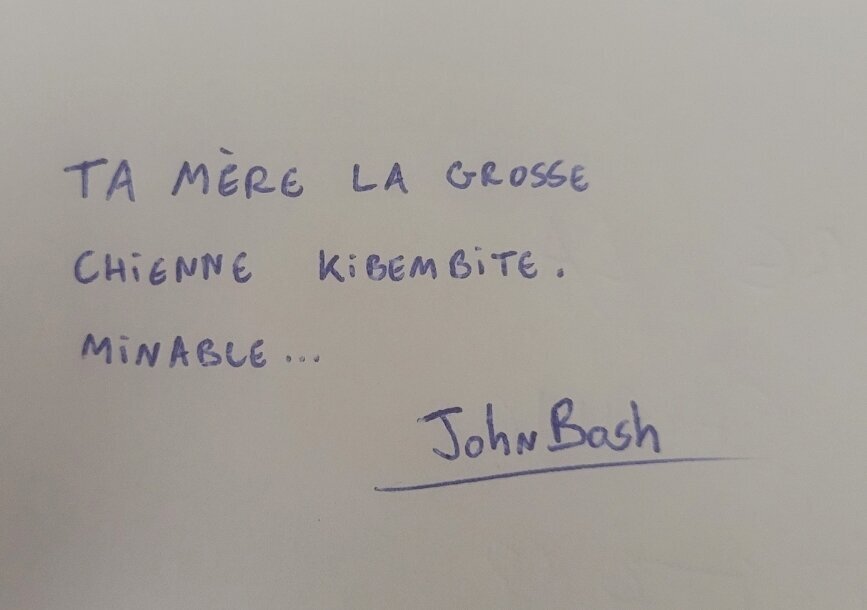 TA MÈRE LA GROSSE
CHIENNE KIBEMBITE.
MINABLE...
JohnBash